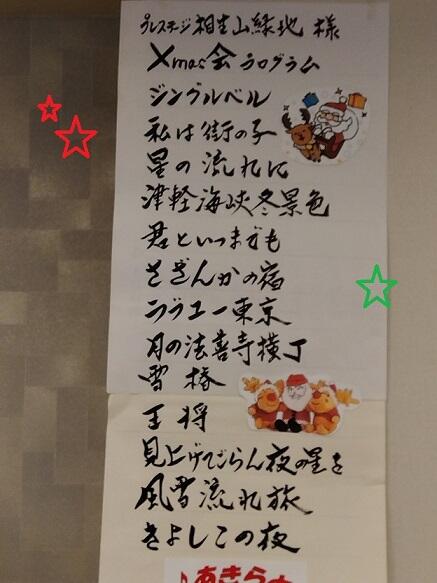 プレステージ相生山緑地 様
Xmas会プログラム
ジングルベル
私は街の子
星の流れに
津軽海峡冬景色
君といつまでも
さざんかの宿
ラブユー東京
月の法善寺横丁
雪椿
王将
見上げてごらん夜の星を
風雪流れ旅
きよしこの夜
♪あきら